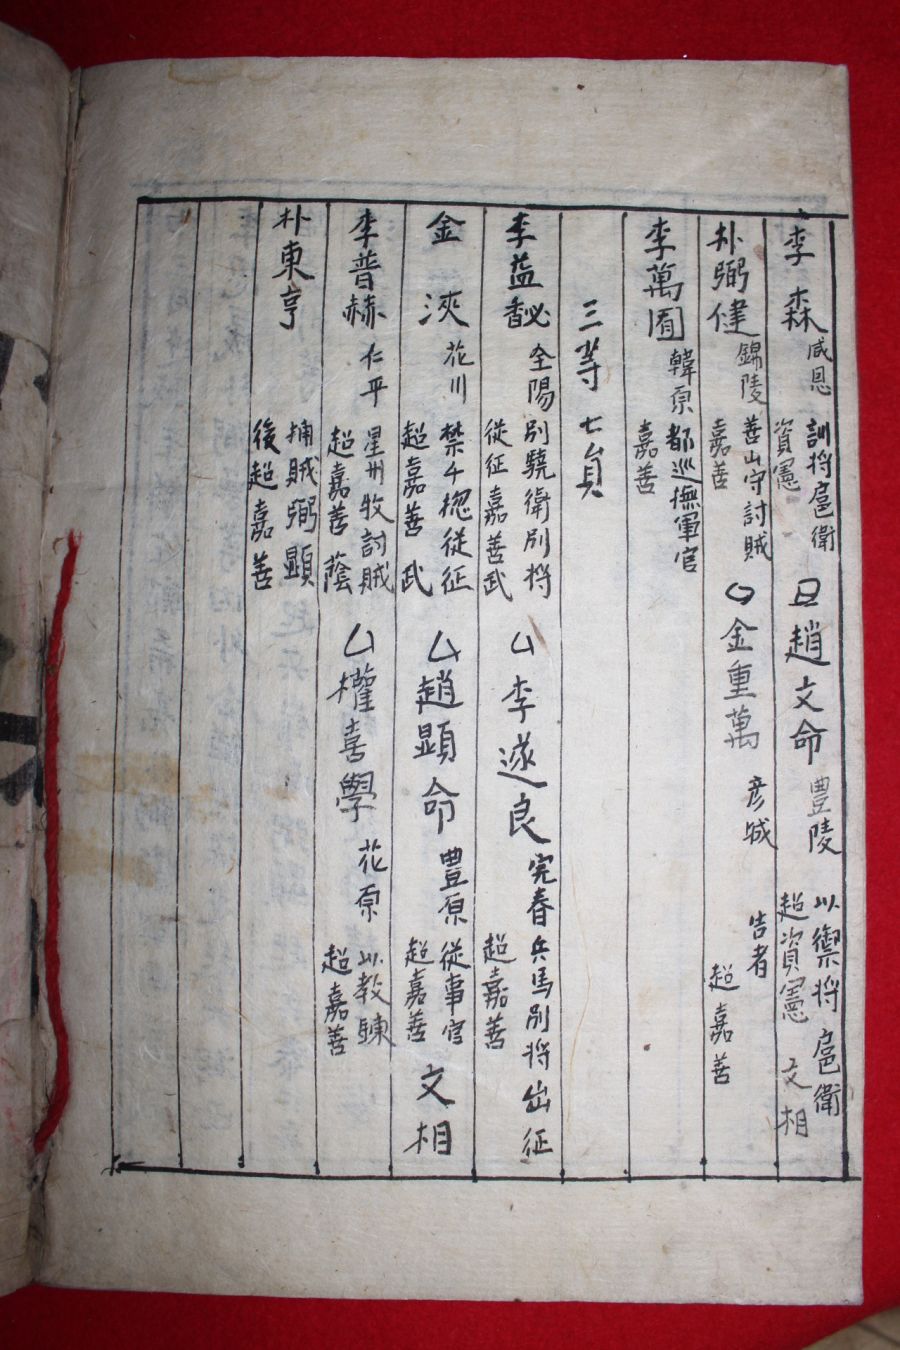 李森 咸恩 訓將扈衛 資憲 趙文命 豊陵 以禦將扈衛 超資憲 文相
朴弼健 錦陵 善山守討賊 嘉善 金重萬 彦城 告者 超嘉善
李萬囿 韓原 都巡撫軍官 嘉善
三等七員
李益馝 全陽 別驍衛別將 從征嘉善武 李遂良 完春 兵馬別將出征 超嘉善
金浹 花川 禁千摠從征 超嘉善武 趙顯命 豊原 從事官 超嘉善 文相
李普赫 仁平 星州牧討賊 超嘉善蔭 權喜學 花原 以教鍊 超嘉善
朴東亨 捕賊弼顯 後超嘉善